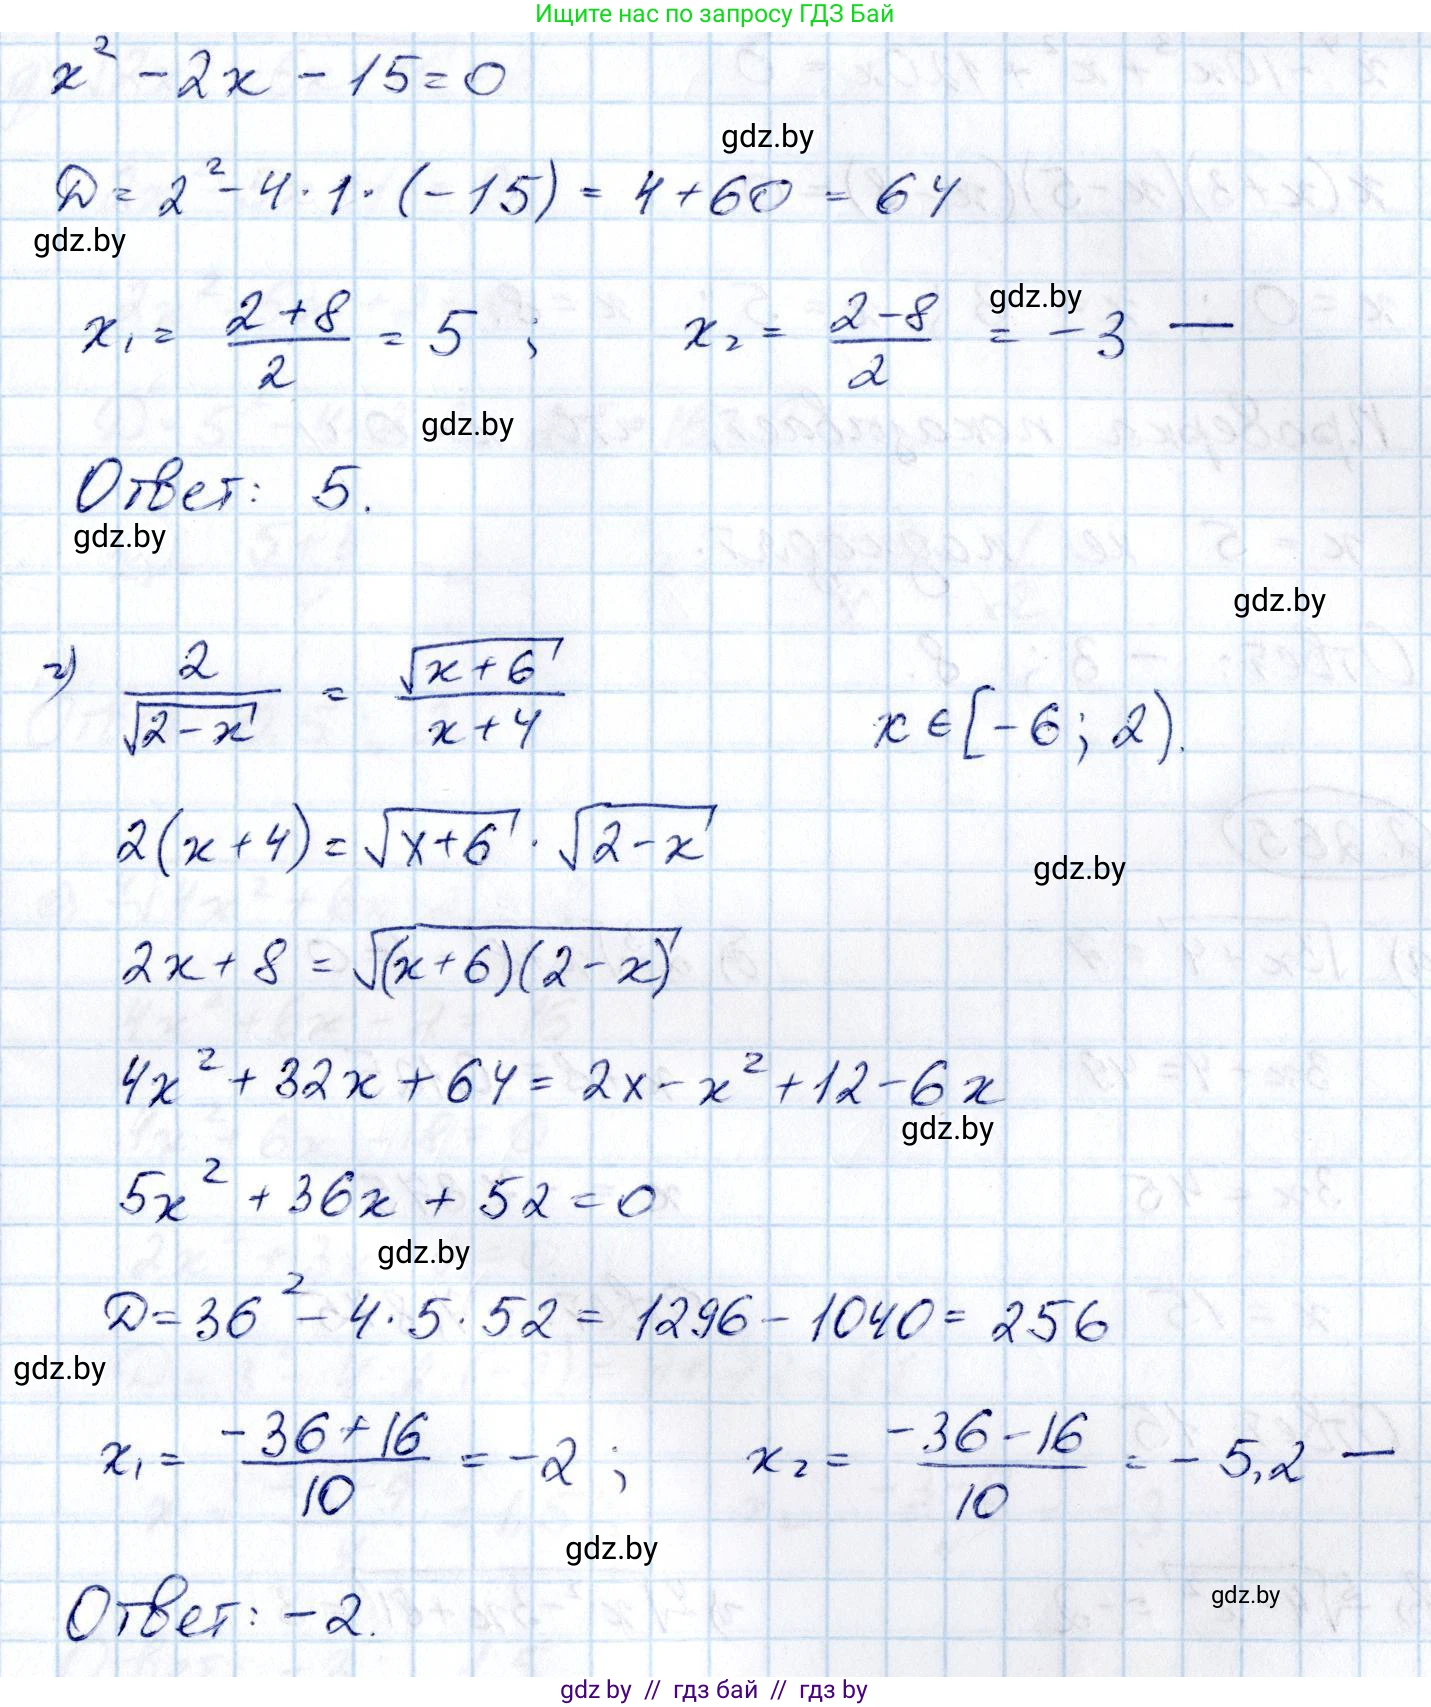 Ищите нас по запросу ГДЗ Бай
x² - 2x - 15 = 0
gdz.by
D = 2² - 4 · 1 · (-15) = 4 + 60 = 64
gdz.by
x₁ = (2+8)/2 = 5 ; x₂ = (2-8)/2 = -3 —
gdz.by
gdz.by
Ответ: 5.
gdz.by
gdz.by
г) 2/√(2-x) = √(x+6)/(x+4) x ∈ [-6; 2).
2(x+4) = √(x+6) · √(2-x)
gdz.by
2x + 8 = √((x+6)(2-x))
4x² + 32x + 64 = 2x - x² + 12 - 6x
gdz.by
5x² + 36x + 52 = 0
gdz.by
D = 36² - 4 · 5 · 52 = 1296 - 1040 = 256
gdz.by
x₁ = (-36+16)/10 = -2 ; x₂ = (-36-16)/10 = -5,2 —
gdz.by
gdz.by
Ответ: -2.
gdz by // гдз бай // гдз by